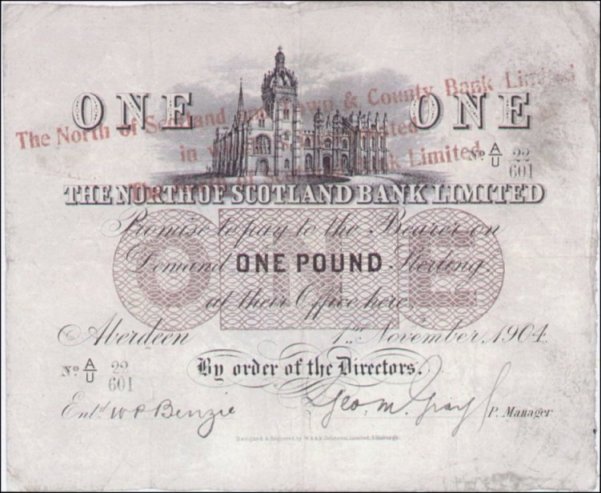 ONE ONE
The North of Scotland and Town & County Bank Limited
in
Limited
Bank Limited
No A/U 22/601
THE NORTH OF SCOTLAND BANK LIMITED
Promise to pay to the Bearer on
Demand ONE POUND Sterling
at their Office here.
ONE
Aberdeen 1st November, 1904.
No A/U 22/601
By order of the Directors.
Entd W P Benzie Geo. M. Gray P. Manager
Designed & Engraved by W. & A.K. Johnston, Limited, Edinburgh.